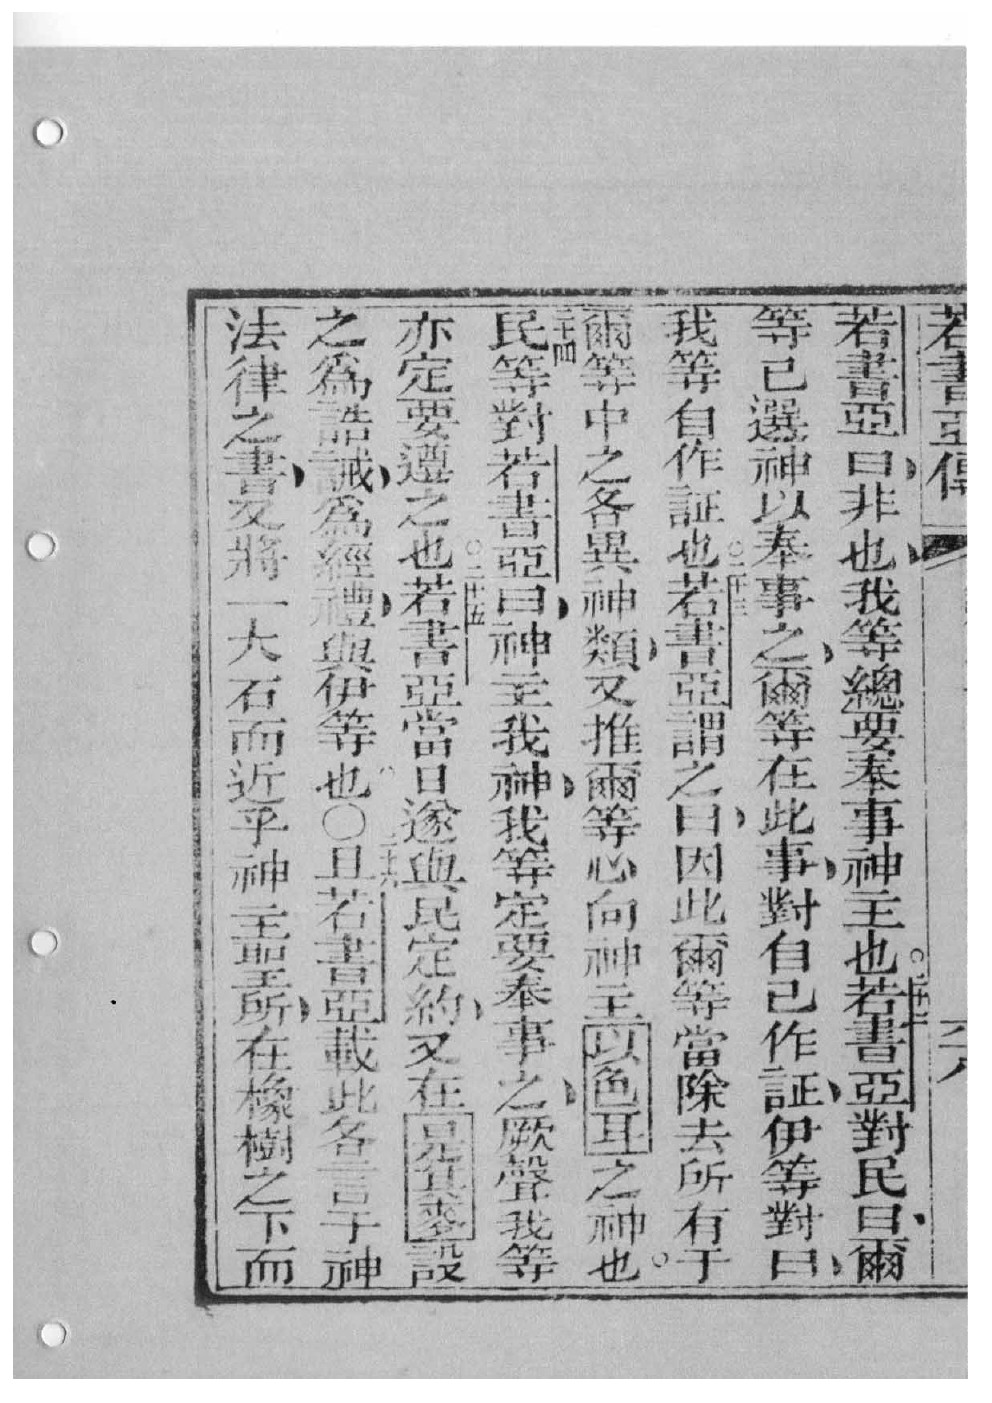 若書亞傳 六八
若書亞曰非也我等總要奉事神主也○二十二若書亞對民曰爾
等已選神以奉事之爾等在此事對自己作証伊等對曰
我等自作証也○二十三若書亞謂之曰因此爾等當除去所有于
爾等中之各異神類又推爾等心向神主以色耳之神也○
二十四民等對若書亞曰神主我神我等定要奉事之厥聲我等
亦定要遵之也○二十五若書亞當日遂與民定約又在是其麥設
之為誥誡為經禮與伊等也○二十六且若書亞載此各言于神
法律之書又將一大石而近乎神主聖所在橡樹之下而